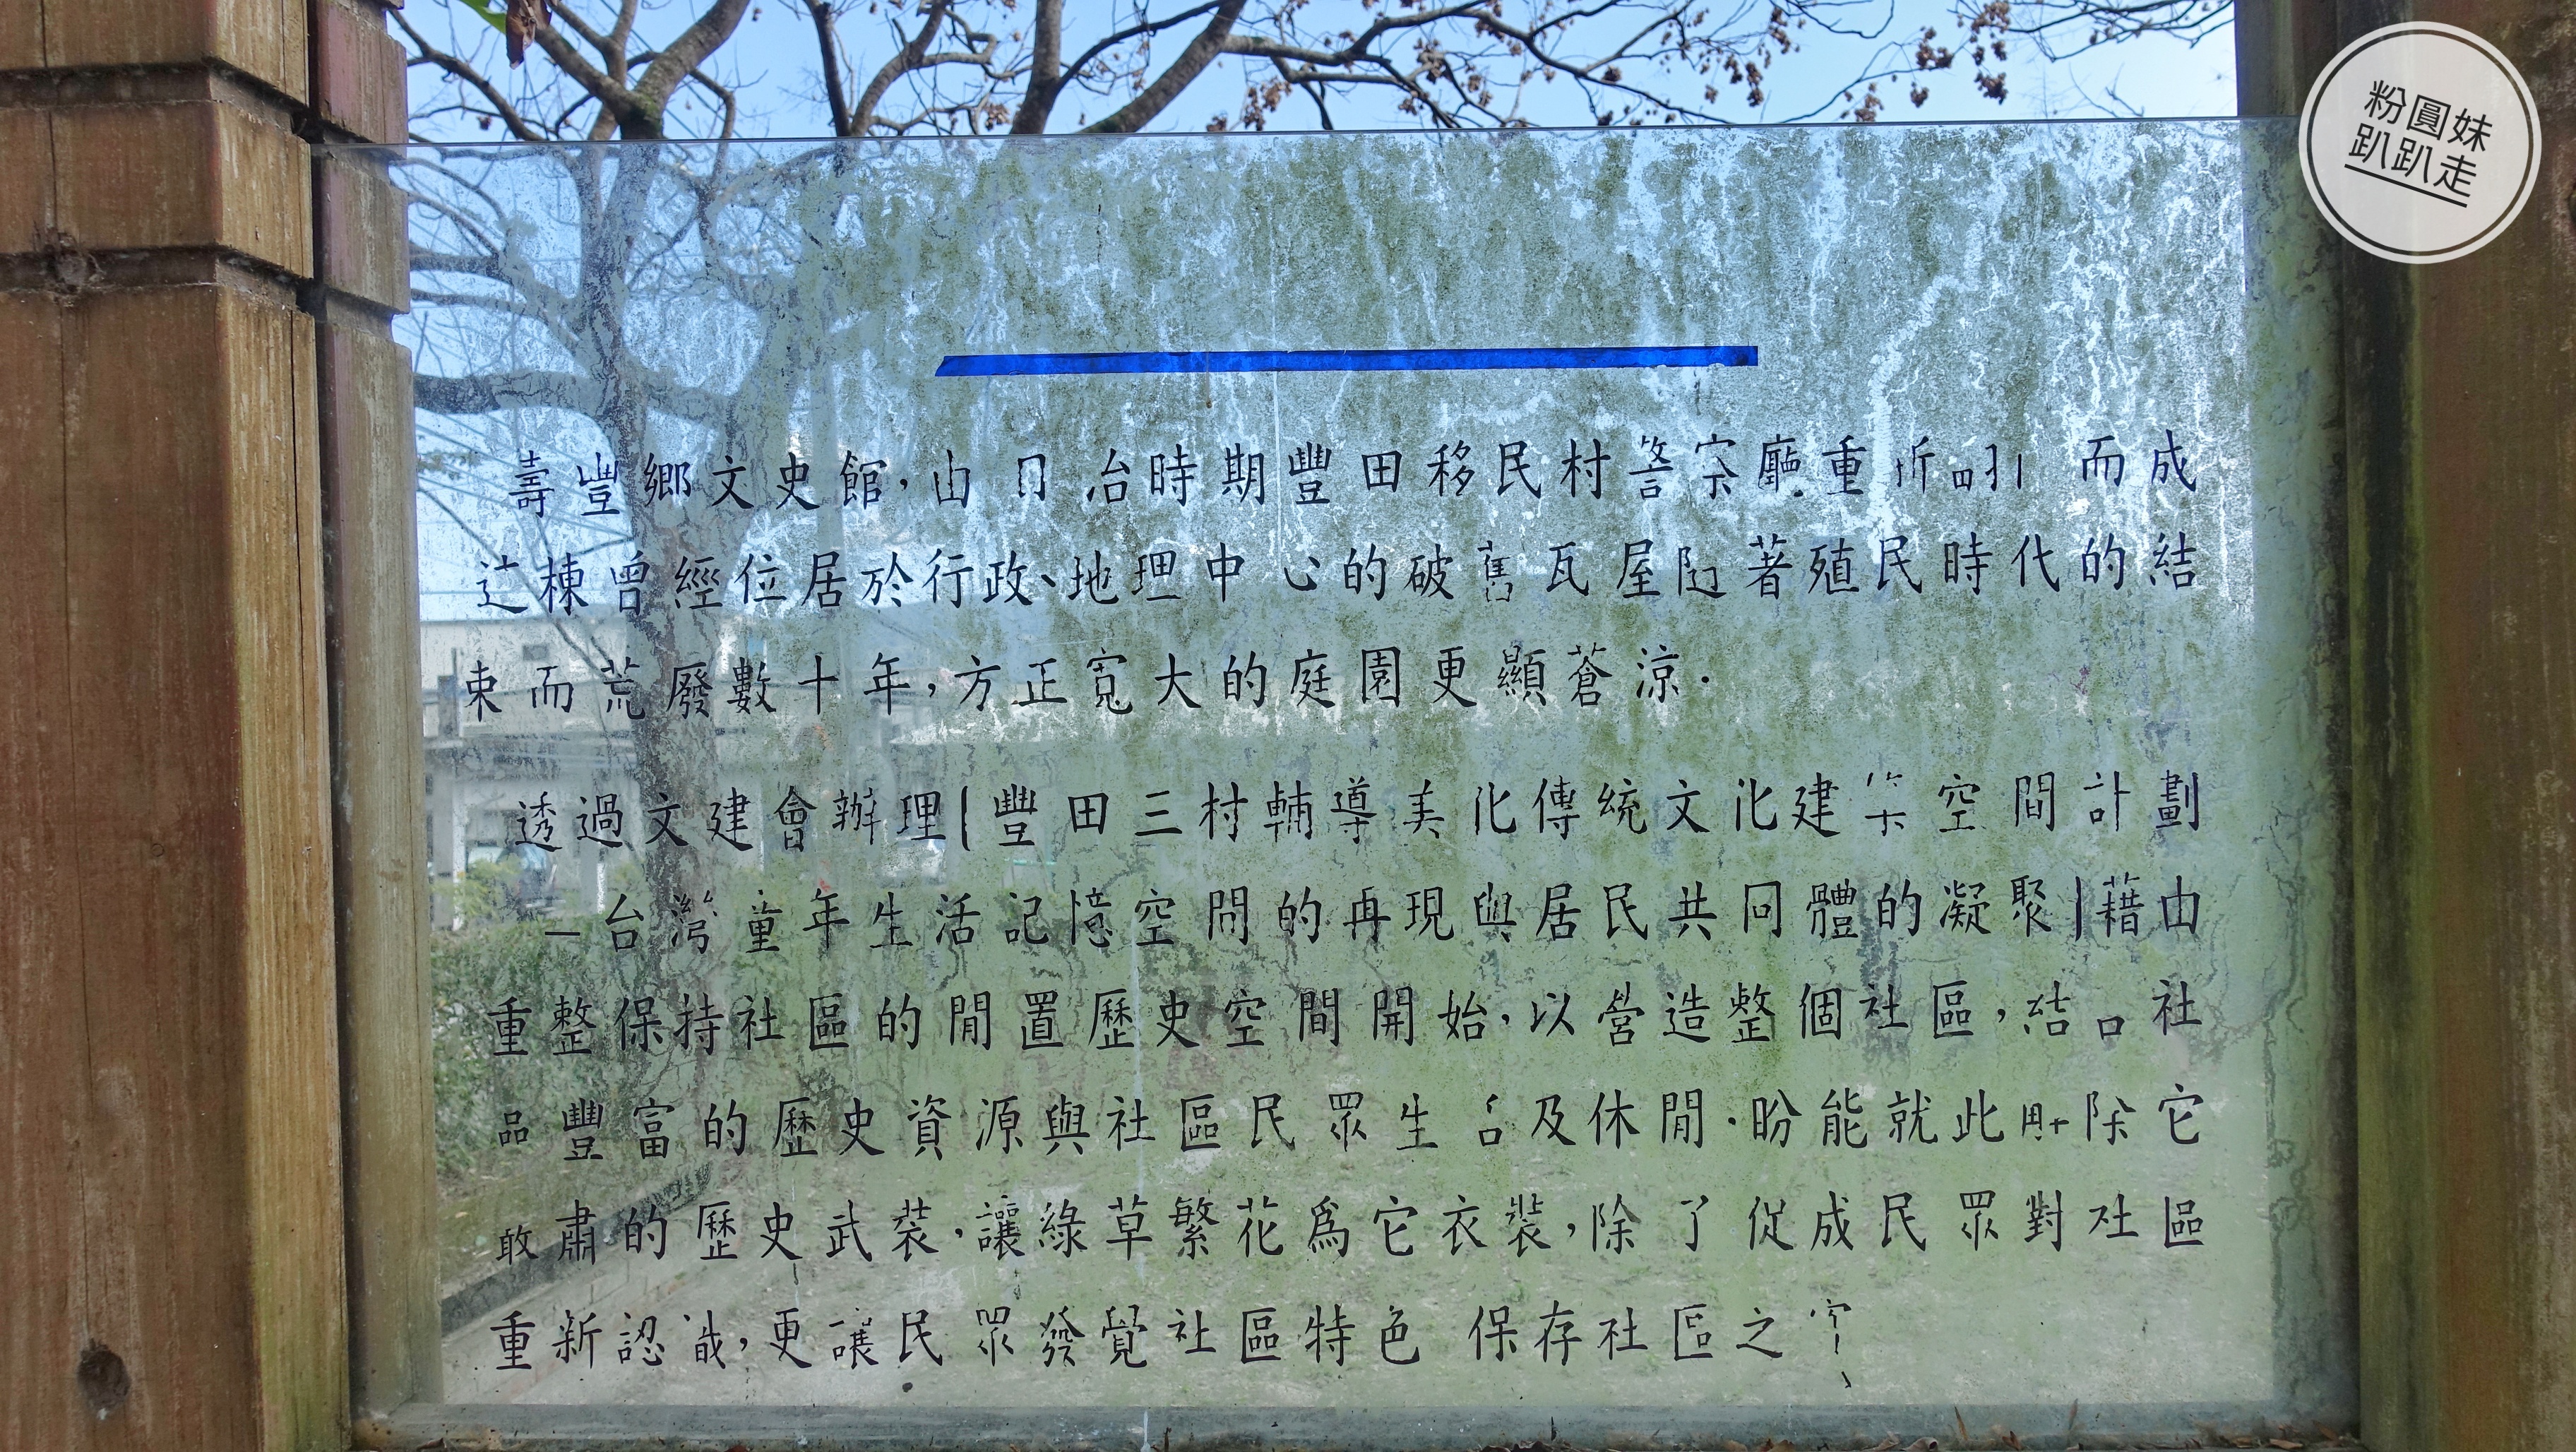 粉圓妹
趴趴走
壽豐鄉文史館，由日治時期豐田移民村警察廳重新 而成
這棟曾經位居於行政、地理中心的破舊瓦屋隨著殖民時代的結
束而荒廢數十年，方正寬大的庭園更顯蒼涼．
透過文建會辦理｜豐田三村輔導美化傳統文化建築空間計劃
—台灣童年生活記憶空間的再現與居民共同體的凝聚｜藉由
重整保持社區的閒置歷史空間開始，以營造整個社區，結 社
區豐富的歷史資源與社區民眾生活及休閒．盼能就此 除它
嚴肅的歷史武裝，讓綠草繁花為它衣裝，除了促成民眾對社區
重新認識，更讓民眾發覺社區特色 保存社區之